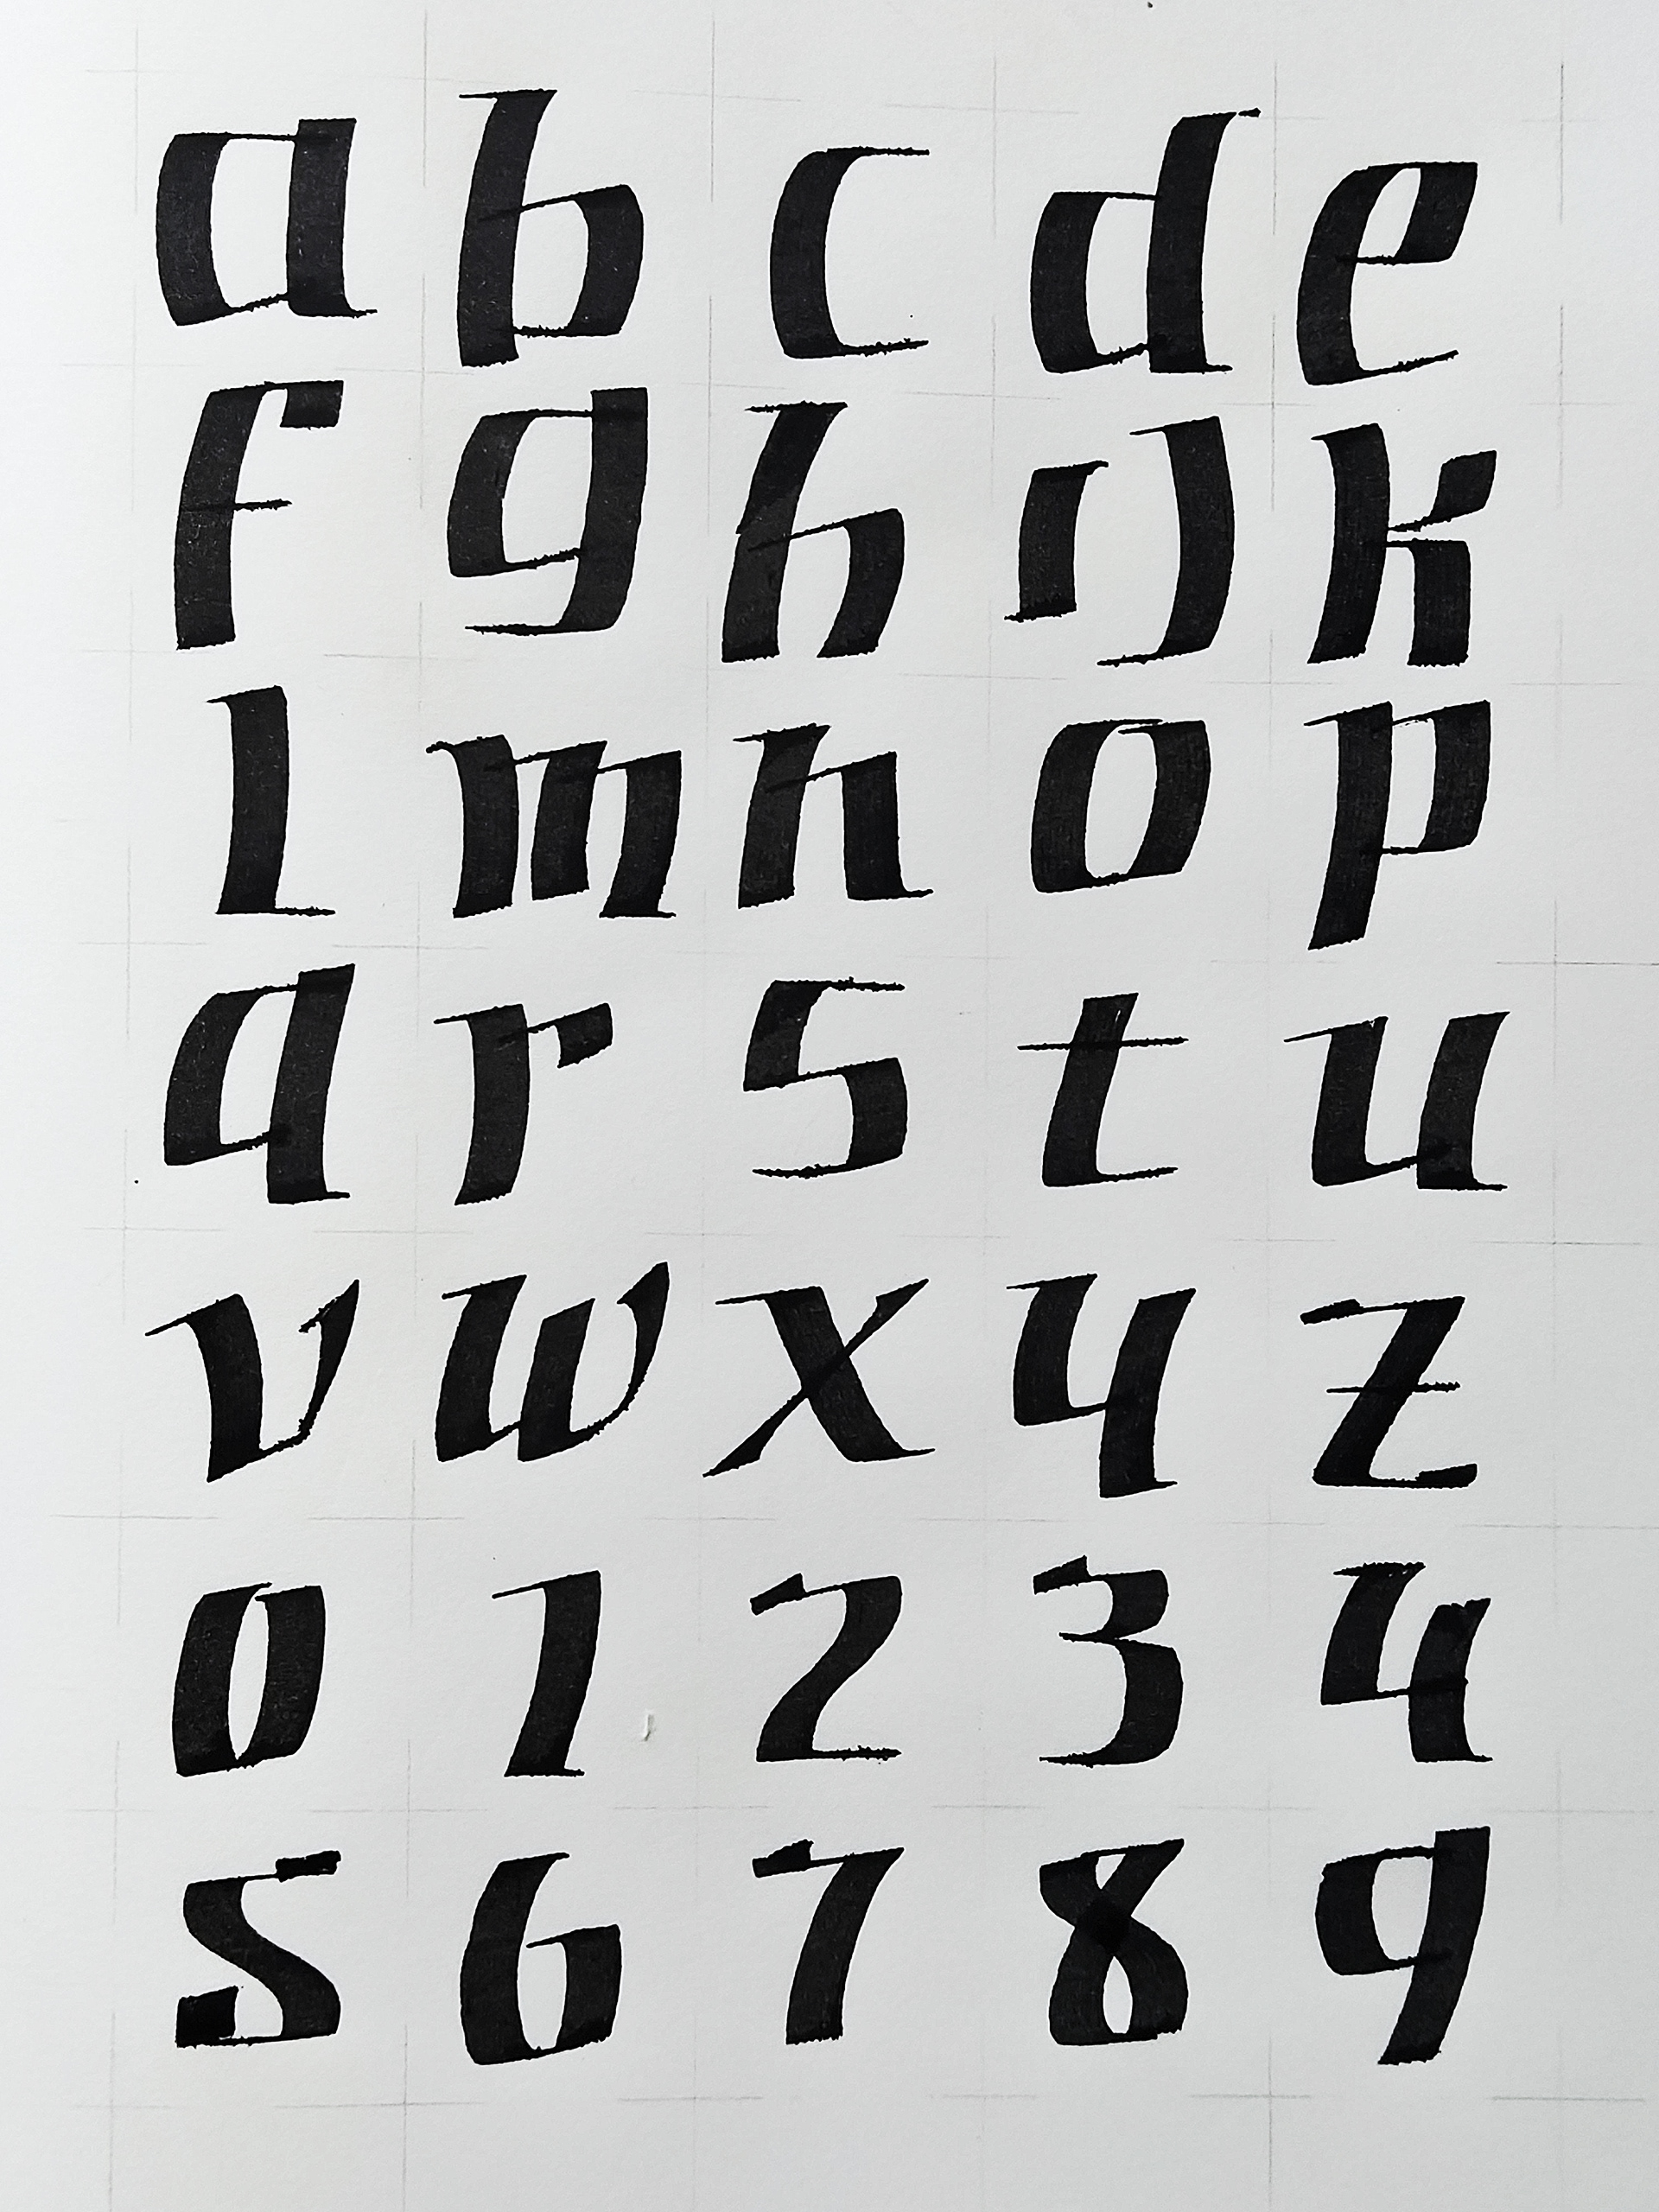 a b c d e
f g h ı J k
l m n o p
q r s t u
v w x y z
0 1 2 3 4
5 6 7 8 9